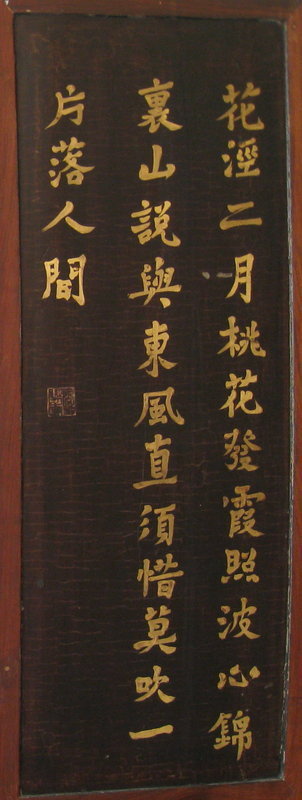 花淫二月桃花發霞照波心錦
裏山說與東風直須惜莫吹一
片落人間